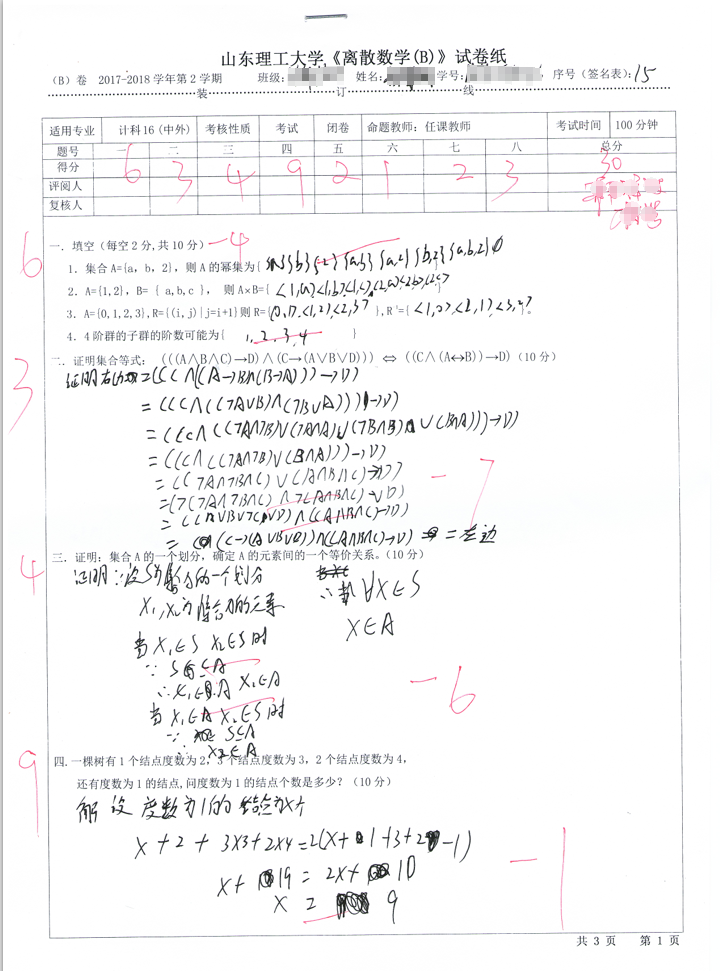 山东理工大学《离散数学(B)》试卷纸
（B）卷 2017-2018 学年第 2 学期 班级: 姓名: 学号: ，序号（签名表）: 15
装 订 线
适用专业 计科16(中外) 考核性质 考试 闭卷 命题教师：任课教师 考试时间 100 分钟
题号 一 二 三 四 五 六 七 八 总分
得分 6 3 4 9 2 1 2 3 30
评阅人
复核人
6
一．填空（每空 2 分,共 10 分） -4
1．集合 A={a，b，2}，则 A 的幂集为{ {b} {2} {a,b} {a,2} {b,2} {a,b,2} ∅
2．A={1,2}，B= { a,b,c }， 则 A×B={ <1,a> <1,b> <1,c> <2,a> <2,b> <2,c>
3．A={0,1,2,3},R={(i,j)|j=i+1}则 R={ <0,1> <1,2> <2,3> },R⁻¹={ <1,0> <2,1> <3,2> }。
4．4 阶群的子群的阶数可能为{ 1, 2, 3, 4 }
3
二．证明集合等式: (((A∧B∧C)→D)∧(C→(A∨B∨D))) ⇔ ((C∧(A↔B))→D)（10 分）
证明右边=((C∧((A→B)∧(B→A)))→D)
= ((C∧((¬A∨B)∧(¬B∨A)))→D)
= ((C∧((¬A∧¬B)∨(¬A∧A)∨(¬B∧B)∨(B∧A)))→D)
= ((C∧((¬A∧¬B)∨(B∧A)))→D)
= ((¬A∧¬B∧C)∨(A∧B∧C)→D)
=(¬(¬A∧¬B∧C)∧¬(A∧B∧C)∨D)
= ((A∨B∨¬C∨D)∧((A∧B∧C)→D)
= ((C→(A∨B∨D))∧((A∧B∧C)→D) =左边
-7
4
三．证明：集合 A 的一个划分，确定 A 的元素间的一个等价关系。（10 分）
证明：设S为集合A的一个划分
X₁,X₂为集合A的元素
当X₁∈S X₂∈S时
∵ S⊆A
∴ X₁∈A X₂∈A
当X₁∈A X₂∈S时
∵ S⊆A
∴ X₂∈A
∴ ∀X∈S
X∈A
-6
9
四．一棵树有 1 个结点度数为 2，3 个结点度数为 3，2 个结点度数为 4，
还有度数为 1 的结点,问度数为 1 的结点个数是多少？（10 分）
解 设 度数为1的结点为X个
X+2+3X3+2X4=2(X+1+3+2-1)
X+19=2X+10
X=9
-1
共 3 页 第 1 页